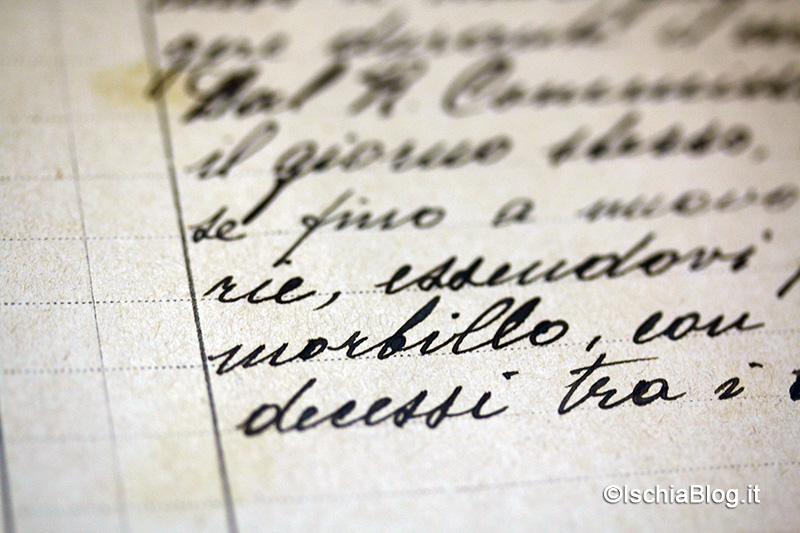 Dal R. Commis
il giorno stesso,
se fino a nuovo
rie, essendovi
morbillo, con
decessi tra i
©IschiaBlog.it